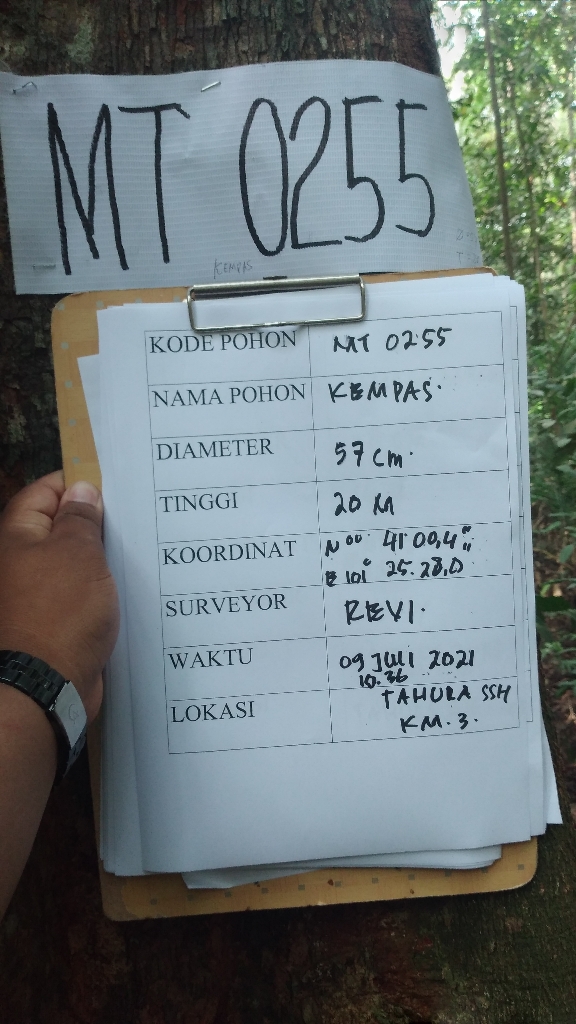 MT 0255
KEMPAS
KODE POHON MT 0255
NAMA POHON KEMPAS.
DIAMETER 57 cm.
TINGGI 20 M
KOORDINAT N 00° 41' 00,4"
E 101° 25. 28,0
SURVEYOR REVI.
WAKTU 09 JULI 2021
10.36
LOKASI TAHURA SSH
KM. 3.